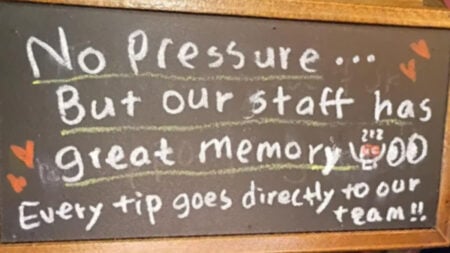 No Pressure...
But our staff has
great memory
Every tip goes directly to our
team!!